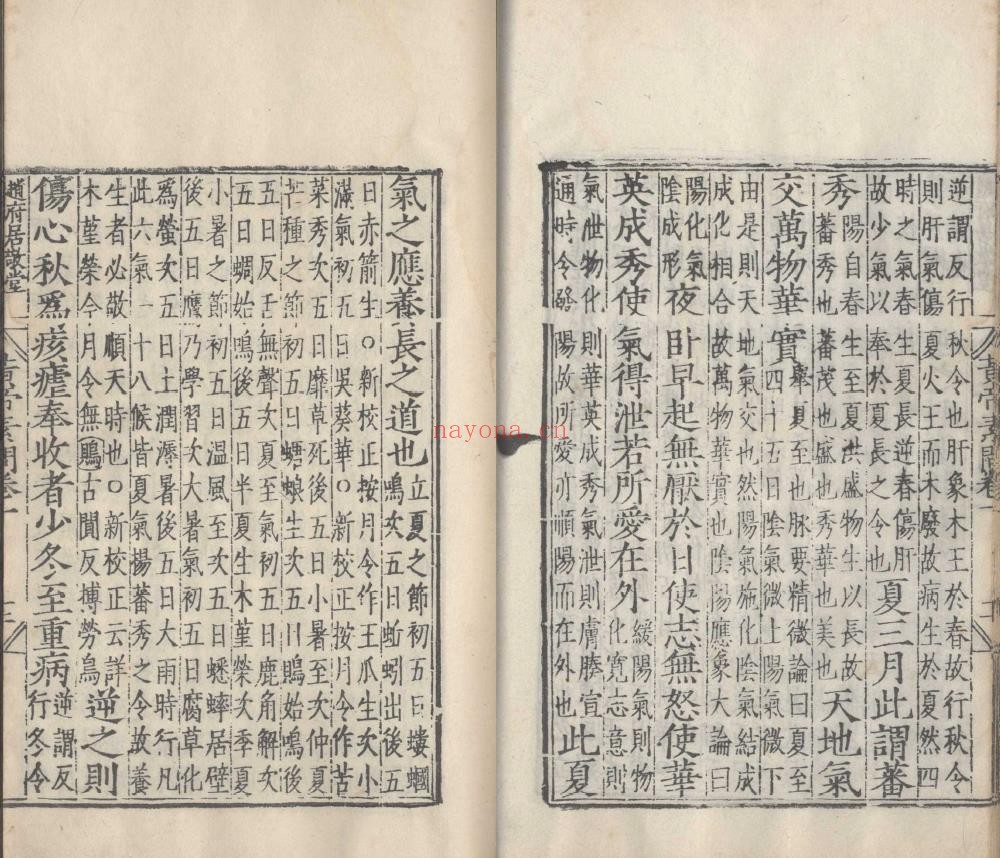 逆謂反行秋令也肝象木王於春故行秋令
則肝氣傷夏火王而木廢故病生於夏然四
時之氣春生夏長逆春傷肝
故少氣以奉於夏長之令也
夏三月此謂蕃
秀
陽自春生至夏洪盛物生以長故
蕃秀也蕃茂也盛也秀華也美也
天地氣
交萬物華實
舉夏至也脉要精微論曰夏至
四十五日陰氣微上陽氣微下
由是則天地氣交也然陽氣施化陰氣結成
成化相合故萬物華實也陰陽應象大論曰
陽化氣
陰成形
夜臥早起無厭於日使志無怒使華
英成秀使氣得泄若所愛在外
緩陽氣則物
化寬志意則
氣泄物化則華英成秀氣泄則膚腠宣
通時令發陽故所愛亦順陽而在外也
此夏
黃帝素問卷一
氣之應養長之道也
立夏之節初五日螻蟈
鳴次五日蚯蚓出後五
日赤箭生○新校正按月令作王瓜生次小
滿氣初五日吳葵華○新校正按月令作苦
菜秀次五日靡草死後五日小暑至次仲夏
芒種之節初五日螗蜋生次五日鵙始鳴後
五日反舌無聲次夏至氣初五日鹿角解次
五日蜩始鳴後五日半夏生木菫榮次季夏
小暑之節初五日溫風至次五日蟋蟀居壁
後五日鷹乃學習次大暑氣初五日腐草化
爲螢次五日土潤溽暑後五日大雨時行凡
此六氣一十八候皆夏氣揚蕃秀之令故養
生者必敬順天時也○新校正云詳
木菫榮今月令無鵙古聞反博勞鳥
逆之則
傷心秋爲痎瘧奉收者少冬至重病
逆謂反
行冬令
趙府居敬堂
黃帝素問卷一
nayona.cn